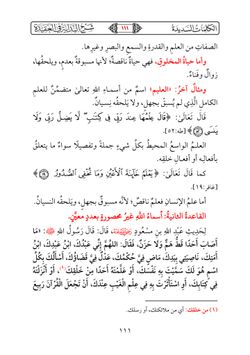 الكلمات السديدة ١١١ شرح البداية في العقيدة
الصفاتِ من العلمِ والقدرةِ والسمعِ والبصرِ وغيرِها.
وأما حياةُ المخلوقِ، فهي حياةٌ ناقصةٌ؛ لأنها مسبوقةٌ بعدمٍ، ويلحقُها،
زوالٌ وفَناءٌ.
ومثالٌ آخرُ: «العليم» اسمٌ مِن أسماءِ اللهِ تعالى متضمِّنٌ للعلمِ
الكاملِ الَّذِي لم يُسبَقْ بجهلٍ، ولا يَلحقُه نِسيانٌ.
قَالَ تَعَالَى: ﴿قَالَ عِلْمُهَا عِندَ رَبِّي فِي كِتَابٍ لَّا يَضِلُّ رَبِّي وَلَا
يَنسَى﴾ [طه: ٥٢].
العلمُ الواسعُ المحيطُ بكلِّ شيءٍ جملةً وتفصيلًا سواءٌ ما يتعلَّقُ
بأفعالِه أو أفعالِ خلقِه.
كما قَالَ تَعَالَى: ﴿يَعْلَمُ خَائِنَةَ الْأَعْيُنِ وَمَا تُخْفِي الصُّدُورُ﴾
[غافر: ١٩].
أما علمُ الإنسانِ فعلمٌ ناقصٌ؛ لأنَّه مسبوقٌ بجهلٍ، ويَلحقُه النسيانُ.
القاعدةُ الثانيةُ: أسماءُ اللهِ غيرُ محصورةٍ بعددٍ معيَّنٍ.
لِحَدِيثِ عَبْدِ اللهِ بنِ مَسْعُودٍ رَضِيَ اللهُ عَنْهُ، قَالَ: قَالَ رَسُولُ اللهِ ﷺ: «مَا
أَصَابَ أَحَدًا قَطُّ هَمٌّ وَلَا حَزَنٌ، فَقَالَ: اللهُمَّ إِنِّي عَبْدُكَ، ابْنُ عَبْدِكَ، ابْنُ
أَمَتِكَ، نَاصِيَتِي بِيَدِكَ، مَاضٍ فِيَّ حُكْمُكَ، عَدْلٌ فِيَّ قَضَاؤُكَ، أَسْأَلُكَ بِكُلِّ
اسْمٍ هُوَ لَكَ سَمَّيْتَ بِهِ نَفْسَكَ، أَوْ عَلَّمْتَهُ أَحَدًا مِنْ خَلْقِكَ(١)، أَوْ أَنْزَلْتَهُ
فِي كِتَابِكَ، أَوِ اسْتَأْثَرْتَ بِهِ فِي عِلْمِ الْغَيْبِ عِنْدَكَ، أَنْ تَجْعَلَ الْقُرْآنَ رَبِيعَ
(١) من خلقك: أي من ملائكتك، أو رسلك.
١١١